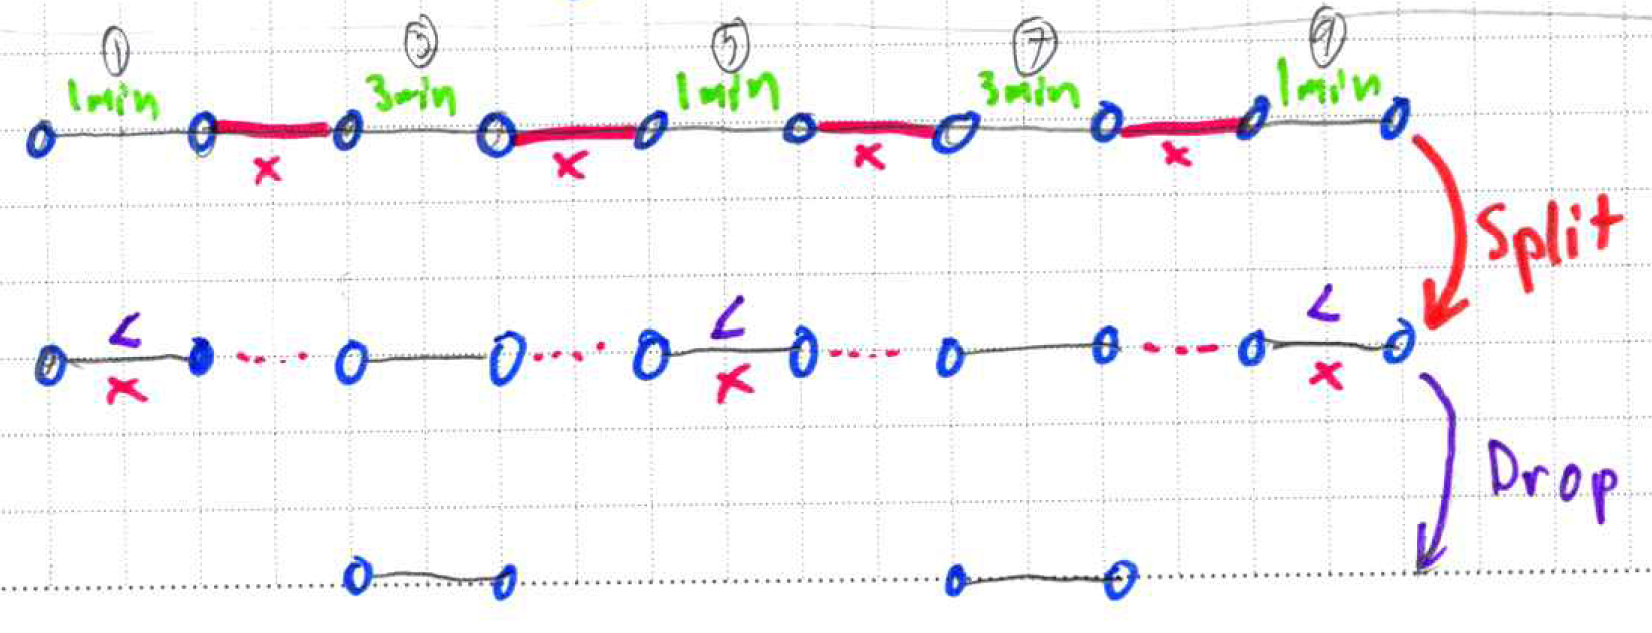 ① ③ ⑤ ⑦ ⑨
1min 3min 1min 3min 1min
x x x x
Split
< < <
x x x
Drop